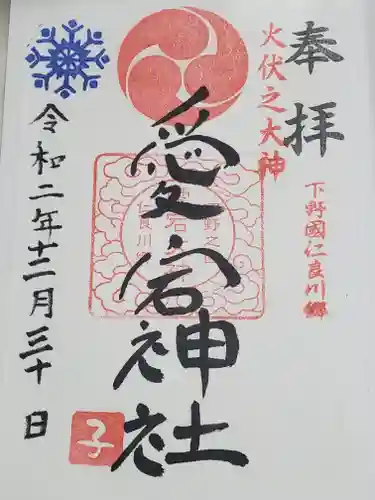 奉拝
火伏之大神
下野國仁良川郷
愛宕神社
令和二年十二月三十日
子